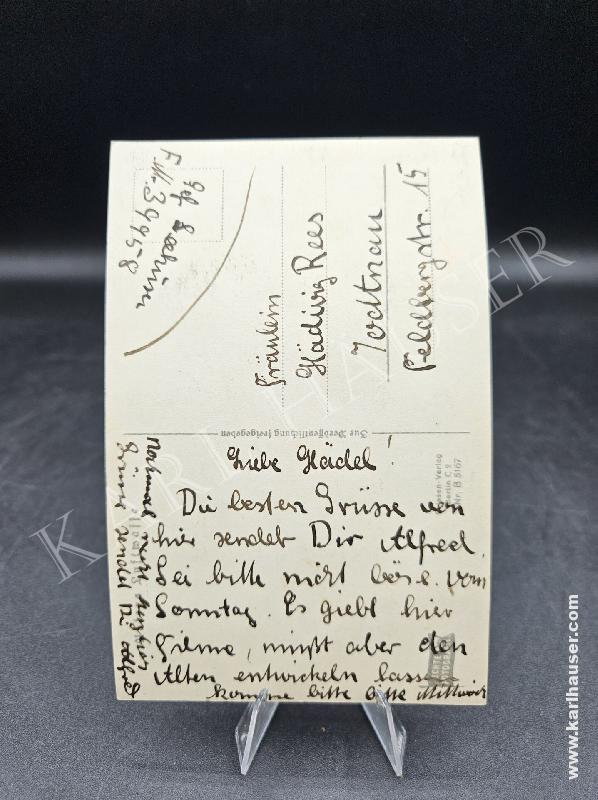 Liebe Hädel!
Die besten Grüsse von
hier sendet Dir Alfred.
Sei bitte nicht böse vom
Sonntag. Es giebt hier
Filme, mußt aber den
Alten entwickeln lassen
komme bitte bitte Mittwoch
Nochmal
Grüsse sendet Dir Alfred
Fräulein
Hädwig Rees
Todtnau
Feldbergstr. 15
39958
Zur Veröffentlichung freigegeben
-Verlag
Berlin C 2
Nr. B 5167
KARL HAUSER
www.karlhauser.com